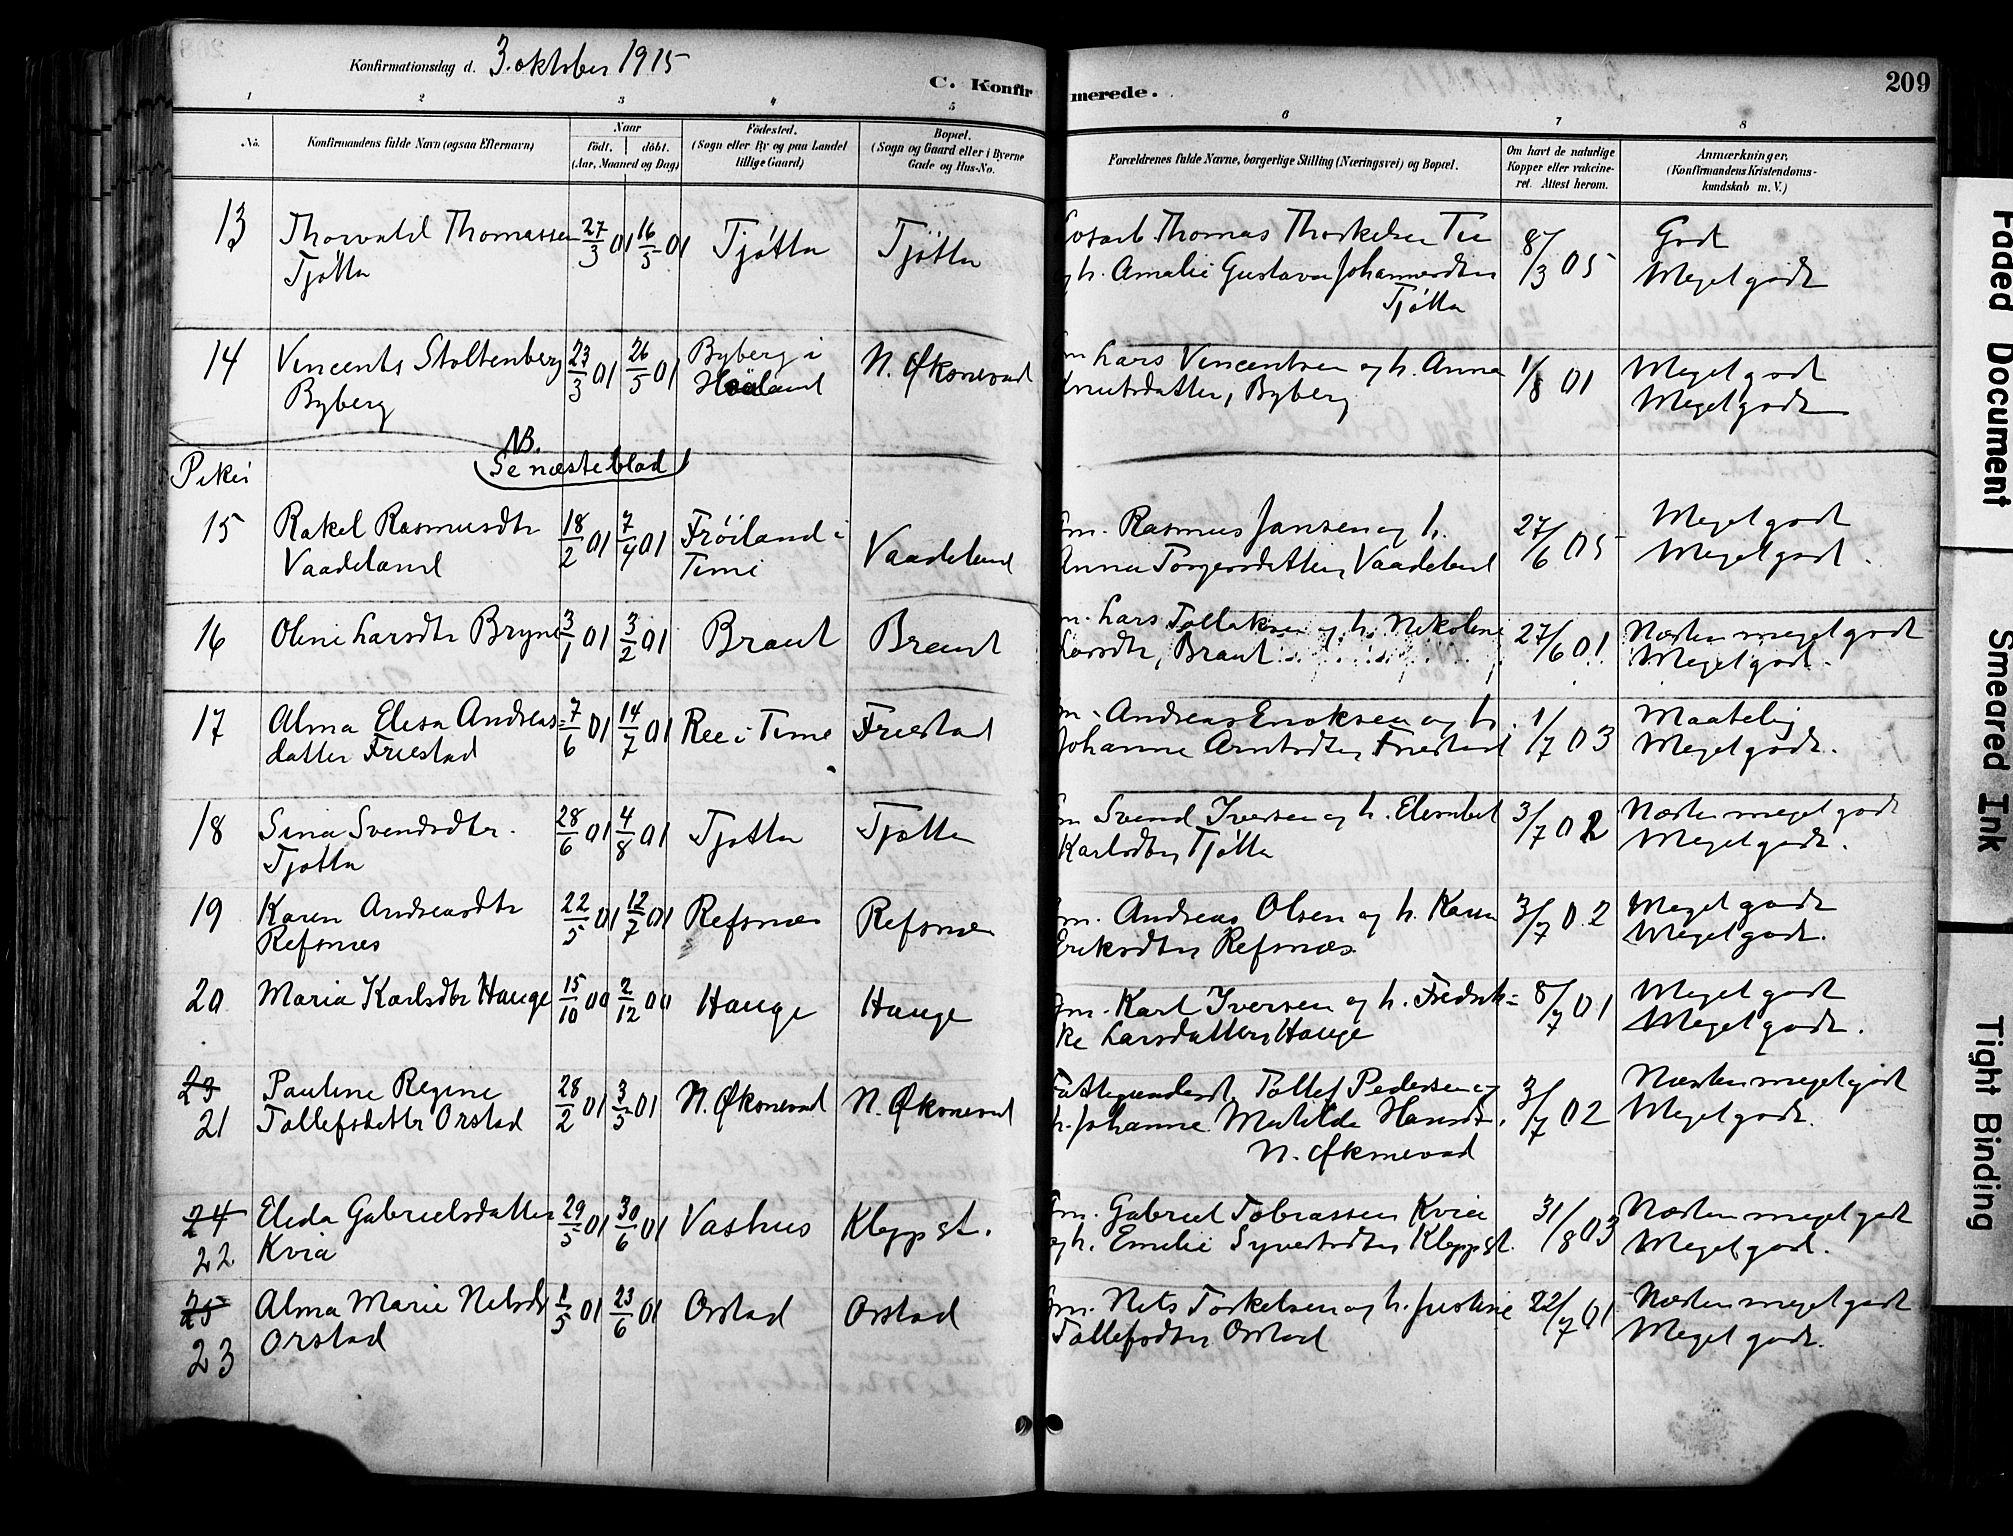 Konfirmationsdag d. 3. oktober 1915
C. Konfirmerede.
209
1 2 3 4 5 6 7 8
No.
Konfirmandens fulde Navn (ogsaa Efternavn)
Naar
födt. döbt.
(Aar, Maaned og Dag)
Födested.
(Sogn eller By og paa Landet
tillige Gaard)
Bopæl.
(Sogn og Gaard eller i Byerne
Gade og Hus-No.
Forældrenes fulde Navne, borgerlige Stilling (Næringsvei) og Bopæl.
Om havt de naturlige
Kopper eller vakcine-
ret. Attest herom.
Anmærkninger.
(Konfirmandens Kristendoms-
kundskab m. V.)
13 Thorvald Thomassen 27/3 01 16/5 01 Tjötta Tjötta Thomas Thorkelsen 8/3 05 Godt
Tjötta h. Amalie Gustava Johannesdtr Meget godt
Tjötta
14 Vincents Stoltenberg 23/3 01 26/5 01 Byberg i N. Øksnevad Lars Vincentsen og h. Anna 1/8 01 Meget godt
Byberg Håland Knutsdatter, Byberg Meget godt
NB.
Piker Se næste blad
15 Rakel Rasmusdtr 18/2 01 7/4 01 Fröiland i Vaadeland Gm. Rasmus Jansen og h. 27/6 05 Meget godt
Vaadeland Time Anna Torgersdatter, Vaadeland Meget godt.
16 Oline Larsdtr Bryne 3/1 01 3/2 01 Braut Braut Gm. Lars Tollaksen og h. Nikoline 27/6 01 Næsten meget godt
Larsdtr, Braut Meget godt.
17 Alma Elisa Andreas= 7/6 01 14/7 01 Ree i Time Friestad Gm. Andreas Enoksen og h. 1/7 03 Maatelig
datter Friestad Johanne Arntsdtr, Friestad Meget godt.
18 Sina Svendsdtr. 28/6 01 4/8 01 Tjotta Tjotta Gm Svend Iversen og h. Elisabet 3/7 02 Næsten meget godt
Tjotta Karlsdtr, Tjötta Meget godt.
19 Karen Andreasdtr 22/5 01 12/7 01 Refsnæs Refsnæs Gm. Andreas Olsen og h. Karen 3/7 02 Meget godt
Refsnæs Eriksdtr, Refsnæs Meget godt.
20 Maria Karlsdtr Hauge 15/10 00 2/12 00 Hauge Hauge Gm. Karl Iversen og h. Fredrik= 8/7 01 Meget godt
ke Larsdatter, Hauge Meget godt.
23 Pauline Regine 28/2 01 3/5 01 N. Øksnevad N. Øksnevad Tollef Pedersen og 3/7 02 Næsten meget godt
21 Tollefsdatter Orstad h. Johanne Matilde Hansdt. Meget godt.
N. Øksnevad
24 Elida Gabrielsdatter 29/5 01 30/6 01 Vashus Klepp st. Gm. Gabriel Tobiassen Kvia 31/8 03 Næsten meget godt
22 Kvia og h. Emilie Syvertsdtr, Klepp st. Meget godt.
25 Alma Marie Nilsdt 1/5 01 23/6 01 Orstad Orstad Gm. Nils Torkelsen og h. Justine 22/7 01 Næsten meget godt
23 Orstad Tollefsdtr, Orstad Meget godt.
Faded Document
Smeared Ink
Tight Binding